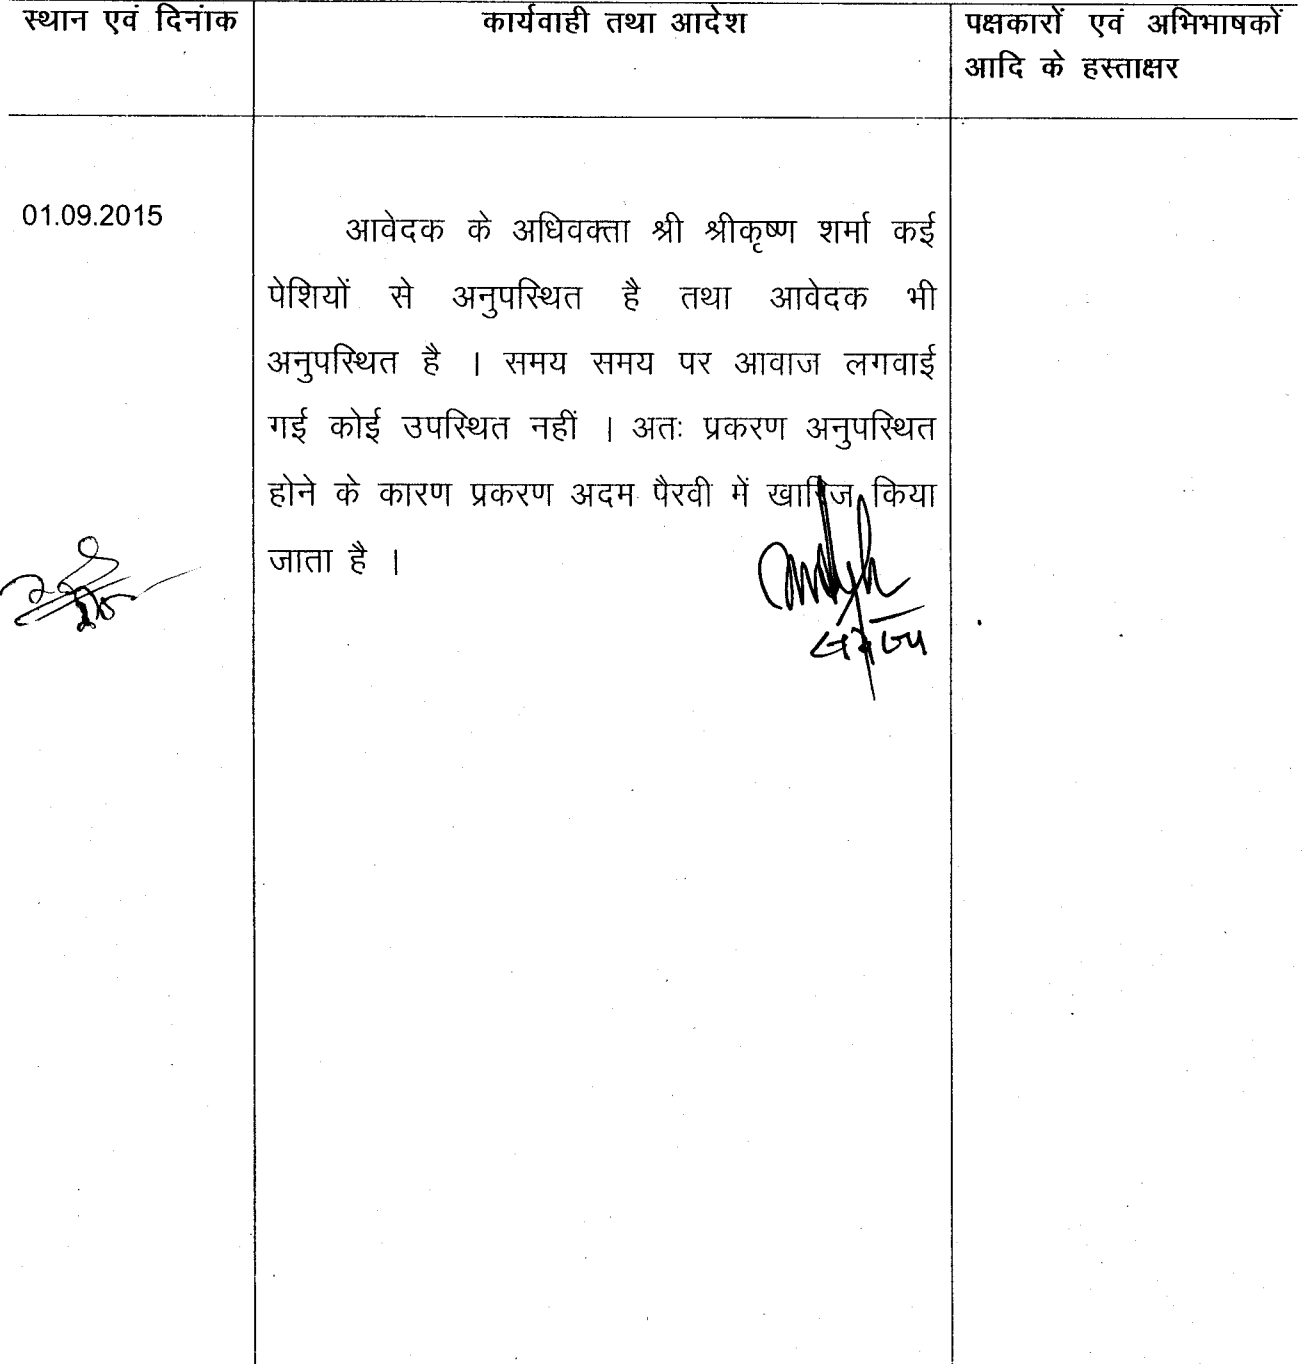 स्थान एवं दिनांक
कार्यवाही तथा आदेश
पक्षकारों एवं अभिभाषकों
आदि के हस्ताक्षर
01.09.2015
आवेदक के अधिवक्ता श्री श्रीकृष्ण शर्मा कई
पेशियों से अनुपस्थित है तथा आवेदक भी
अनुपस्थित है । समय समय पर आवाज लगवाई
गई कोई उपस्थित नहीं । अतः प्रकरण अनुपस्थित
होने के कारण प्रकरण अदम पैरवी में खारिज किया
जाता है ।